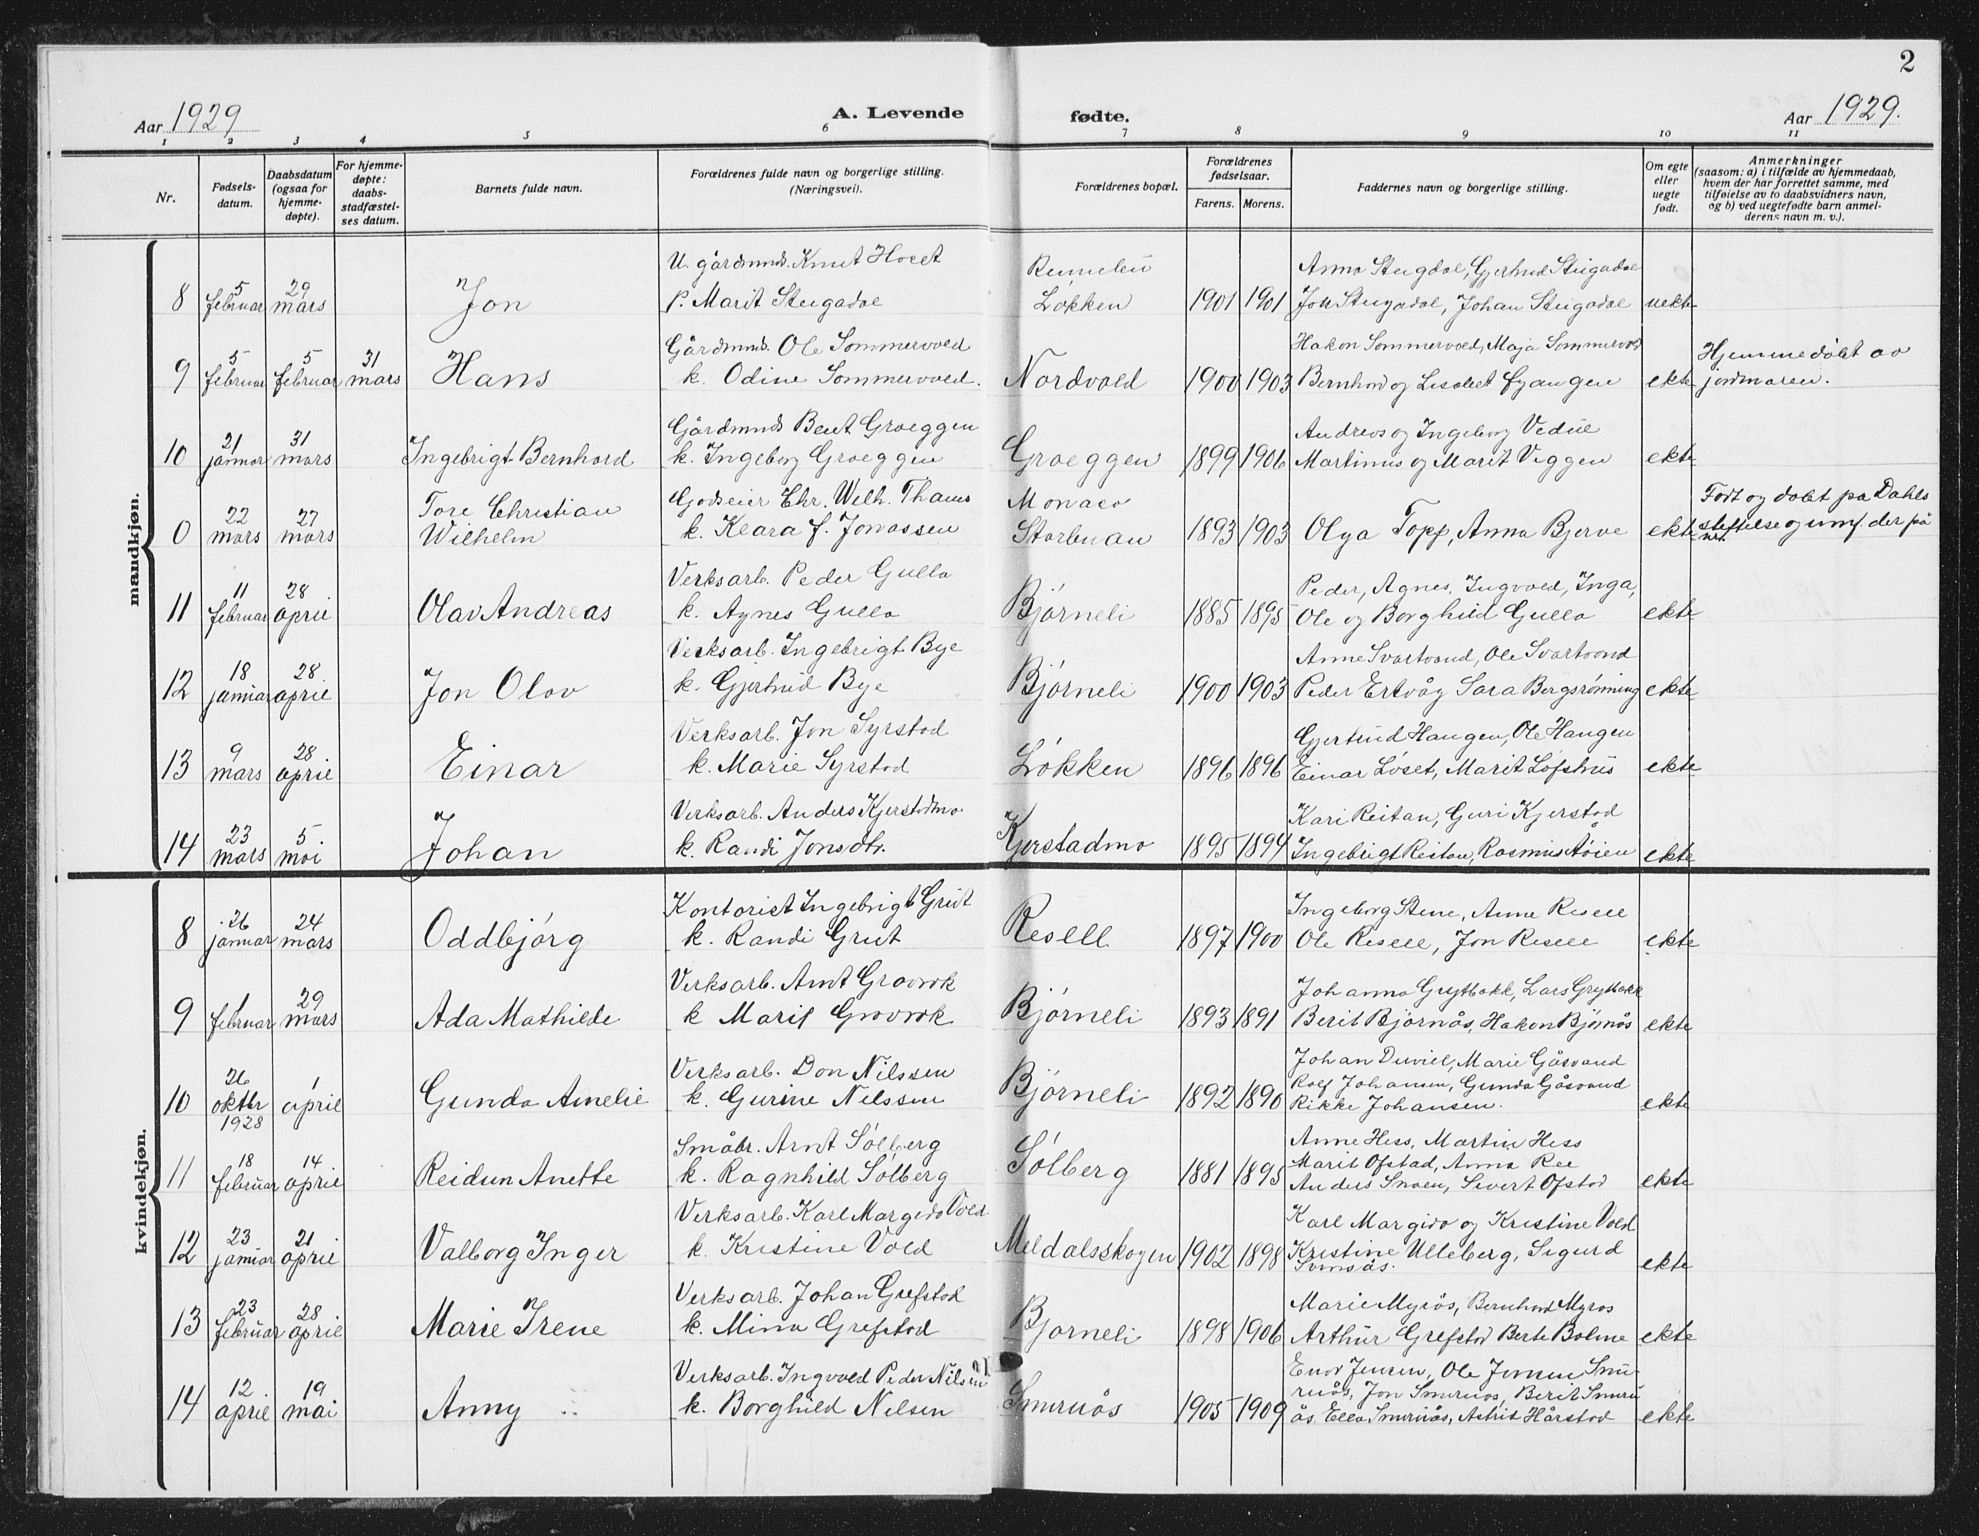 2
Aar 1929
A. Levende
fødte.
Aar 1929.
1 2 3 4 5 6 7 8 9 10 11
Nr.
Fødsels-
datum.
Daabsdatum
(ogsaa for
hjemme-
døpte).
For hjemme-
døpte:
daabs-
stadfæstel-
ses datum.
Barnets fulde navn.
Forældrenes fulde navn og borgerlige stilling.
(Næringsvei).
Forældrenes bopæl.
Forældrenes
fødselsaar.
Farens. Morens.
Faddernes navn og borgerlige stilling.
Om egte
eller
uegte
født.
Anmerkninger
(saasom: a) i tilfælde av hjemmedaab,
hvem der har forrettet samme, med
tilføielse av to daabsvidners navn,
og b) ved uegtefødte barn anmel-
derens navn m. v.).
mandkjøn.
8 5 februar 29 mars Jon
U. gårdmnd. Knut Hoset
p. Marit Steigadal
Rennebu
Løkken 1901 1901
Anna Steigdal, Gjertrud Steigadal
Jon Steigadal, Johan Steigadal uekte
9 5 februar 5 februar 31 mars Hans
Gårdmnd. Ole Sommervold
k. Odine Sommervold.
Nordvold 1900 1903
Hakon Sommervold, Maja Sommervold
Bernhard og Lisabet ekte
Hjemmedøbt av
jordmoren.
10 21 januar 31 mars Ingebrigt Bernhard
Gårdmnd Berit Graeggen
k. Ingeborg Graeggen
Graeggen 1899 1906
Andreas og Ingeborg
Martinus og Marit Viggen ekte
0 22 mars 27 mars
Tore Christian
Wilhelm
Godseier Chr. Wilh. Thams
k. Klara f. Jonassen
Monaco
Storbuan 1893 1903
Olga Topp, Anna Bjerve ekte
Født og døbt på Dahls
stiftelse og der på
11 11 februar 28 april Olav Andreas
Verksarb. Peder Gulla
k. Agnes Gulla
Bjørneli 1885 1895
Peder, Agnes, Ingvald, Inga,
Ole og Borghild Gulla ekte
12 18 januar 28 april Jon Olav
Verksarb. Ingebrigt Bye
k. Gjertrud Bye
Bjørneli 1900 1903
Anne Svartvand, Ole Svartvand
Peder Ertvåg Sara Bergsrønning ekte
13 9 mars 28 april Einar
Verksarb. Jon Syrstad
k. Marie Syrstad
Løkken 1896 1896
Gjertrud Haugen, Ole Haugen
Einar Løset, Marit Løfshus ekte
14 23 mars 5 mai Johan
Verksarb. Anders Kjerstadmo
k. Randi Jonsdtr.
Kjerstadmo 1895 1894
Kari Reitan, Guri Kjerstad
Ingebrigt Reitan, Rasmus Aøien ekte
kvindekjøn.
8 26 januar 24 mars Oddbjørg
Kontorist Ingebrigt Grut
k. Randi Grut
Resell 1897 1900
Ingeborg Stene, Anne Resell
Ole Resell, Jon Resell ekte
9 1 februar 29 mars Ada Mathilde
Verksarb. Arnt Gravrok
k Marit Gravrok
Bjørneli 1893 1891
Johanna Gryttbakk, Lars Gryttbakk
Berit Bjørnås, Hakon Bjørnås ekte
10 26 oktbr 1928 1 april Gunda Amelie
Verksarb. Don Nilssen
k. Gurine Nilssen
Bjørneli 1892 1890
Johan Duviel, Marie Gåsvand
Rolf Johansen, Gunda Gåsvand
Rikke Johansen. ekte
11 18 februar 14 april Reidun Anette
Småbr. Arnt Sølberg
k. Ragnhild Sølberg
Sølberg 1881 1895
Anne Hess, Martin Hess
Marit Ofstad, Anna Ree
Anders Snoen, Sivert Ofstad ekte
12 23 januar 21 april Valborg Inger
Verksarb. Karl Margido Vold
k. Kristine Vold
Meldalsskogen 1902 1898
Karl Margido og Kristine Vold
Kristine Ulleberg, Sigurd
Svinsås. ekte
13 23 februar 28 april Marie Irene
Verksarb. Johan Grefstad
k. Mina Grefstad
Bjørneli 1898 1906
Marie Myrås, Bernhard Myrås
Arthur Grefstad Berte Bolme ekte
14 12 april 19 mai Anny
Verksarb. Ingvald Peder Nilsen
k. Borghild Nilsen
Smirnås 1905 1909
Jensen, Ole Jensen Smir-
nås, Jon Smirnås, Berit Smirn
ås, Ella Smirnås, Astrid Hårstad ekte